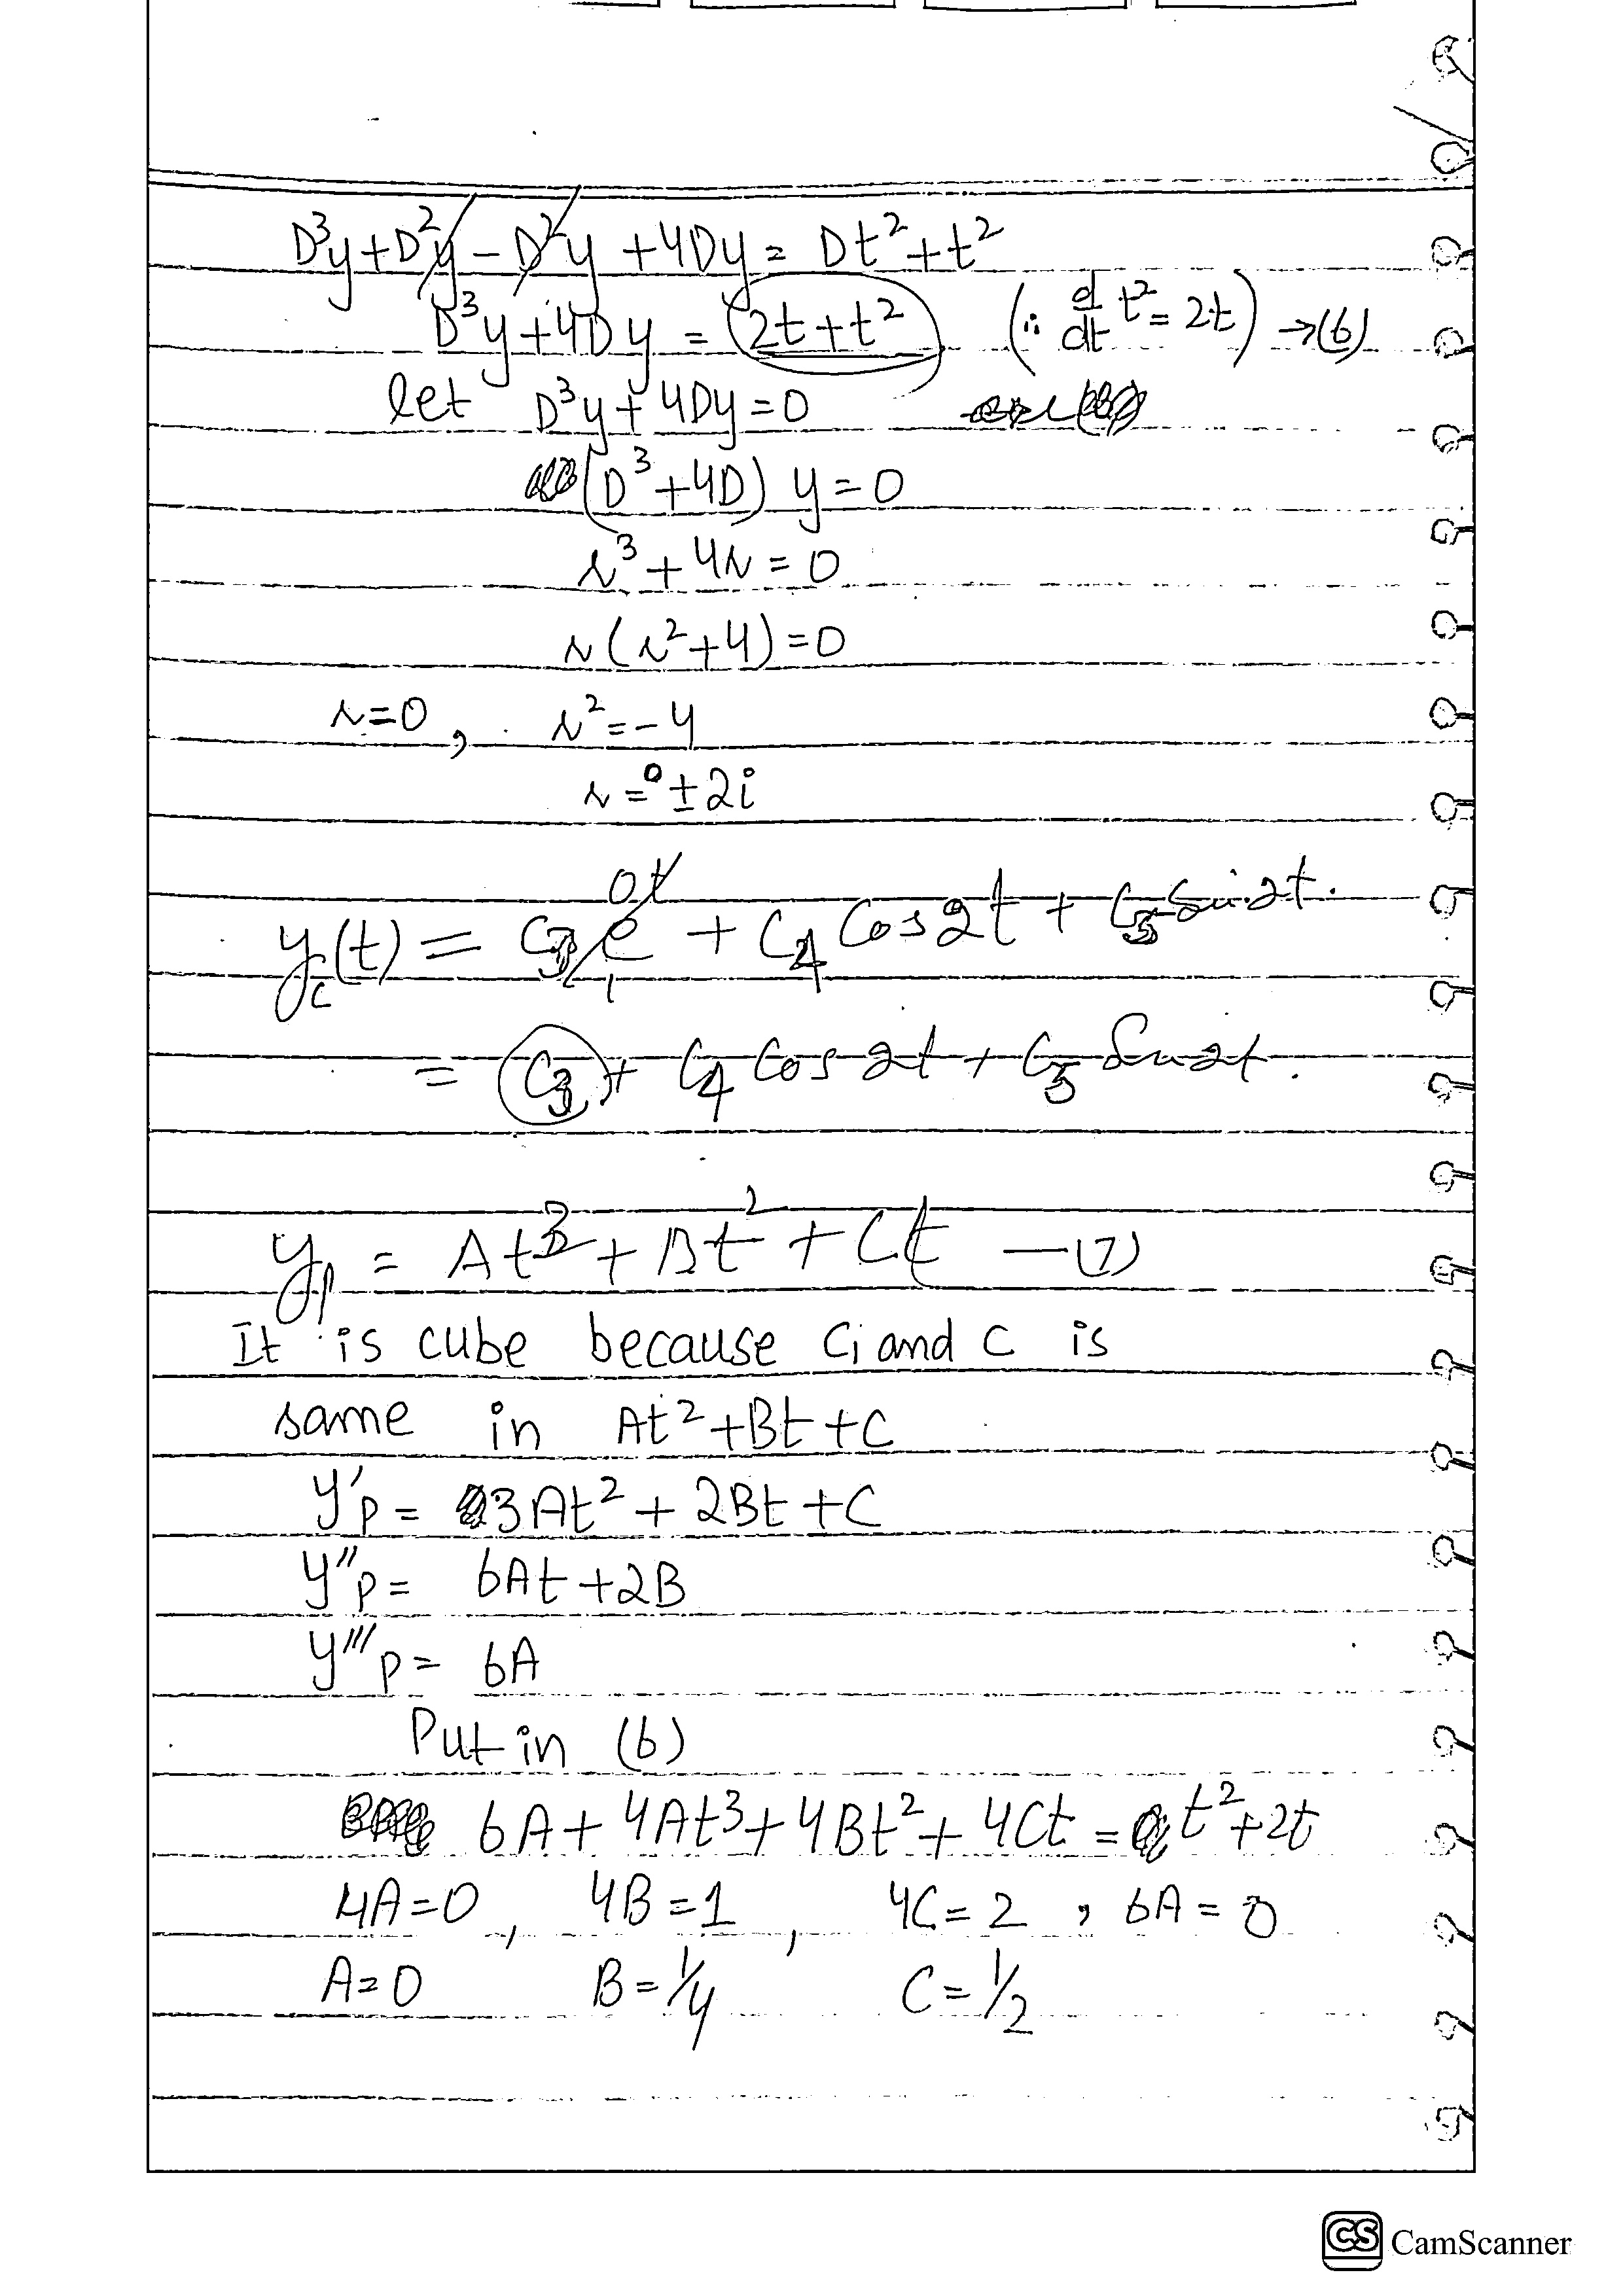 D³y+D²y-D²y+4Dy= Dt²+t²
D³y+4Dy = 2t+t² (∵ d/dt t²=2t) →(6)
let D³y+4Dy=0
(D³+4D) y=0
r³+4r=0
r(r²+4)=0
r=0, r²=-4
r=0±2i
y_c(t) = C₃e^0t + C₄ Cos2t + C₅ Sin2t.
= C₃ + C₄ Cos2t + C₅ Sin2t.
yₚ = At³ + Bt² + Ct —(7)
It is cube because C₁ and C is
same in At²+Bt+C
y'p= 3At²+2Bt+C
y''p= 6At+2B
y'''p= 6A
Put in (6)
6A+4At³+4Bt²+4Ct = t²+2t
4A=0, 4B=1, 4C=2, 6A=0
A=0 B=1/4 C=1/2
CS CamScanner